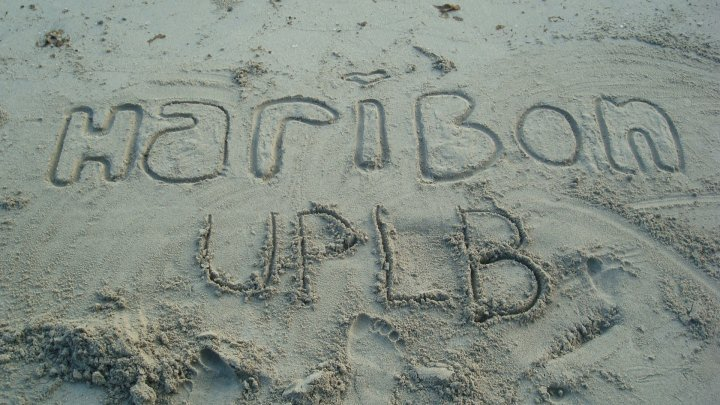 Haribon
UPLB